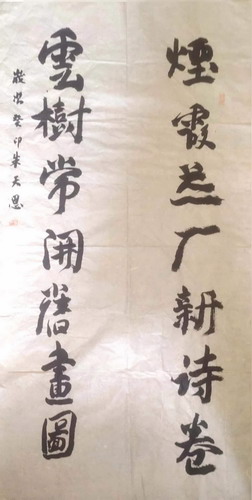 煙霞新诗卷
雲樹常開舊畫圖
歲次癸卯朱天恩